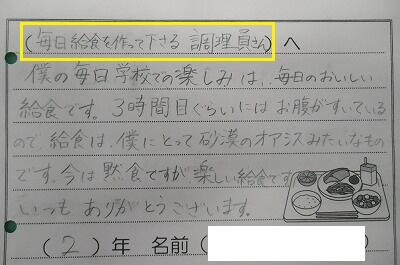 (毎日給食を作って下さる 調理員さん)へ
僕の毎日学校での楽しみは、毎日のおいしい
給食です。3時間目ぐらいにはお腹がすいている
ので、給食は、僕にとって砂漠のオアシスみたいなもの
です。今は黙食ですが楽しい給食です
いつもありがとうございます。
(2)年 名前(